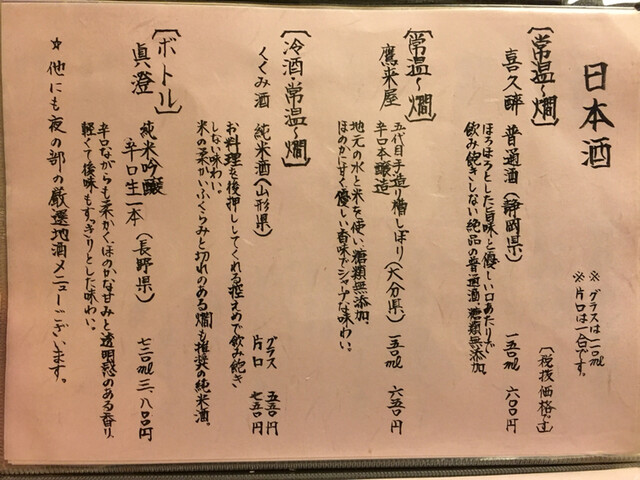 日本酒
※グラスは一一〇ml
※片口は一合です。
〔税抜価格です〕
〔常温〜燗〕
喜久醉 普通酒(静岡県) 一五〇ml 六〇〇円
ほろほろとした旨味と優しい口あたりで
飲み飽きしない絶品の普通酒。糖類無添加
〔常温〜燗〕
鷹来屋 五代目手造り槽しぼり(大分県) 一五〇ml 六五〇円
辛口本醸造
地元の水と米を使い、糖類無添加、
ほのかに甘く優しい香味でシャープな味わい。
〔冷酒・常温〜燗〕
くくみ酒 純米酒(山形県) グラス 五五〇円
片口 七五〇円
お料理を後押ししてくれる控えめで飲み飽き
しない味わい。
米の柔かいふくらみと切れのある燗も推奨の純米酒。
〔ボトル〕
眞澄 純米吟醸 辛口生一本(長野県) 七二〇ml 三、八〇〇円
辛口ながらも柔かく、ほのかな甘みと透明感のある香り、
軽くて後味もすっきりとした味わい。
☆他にも夜の部の厳選地酒メニューございます。